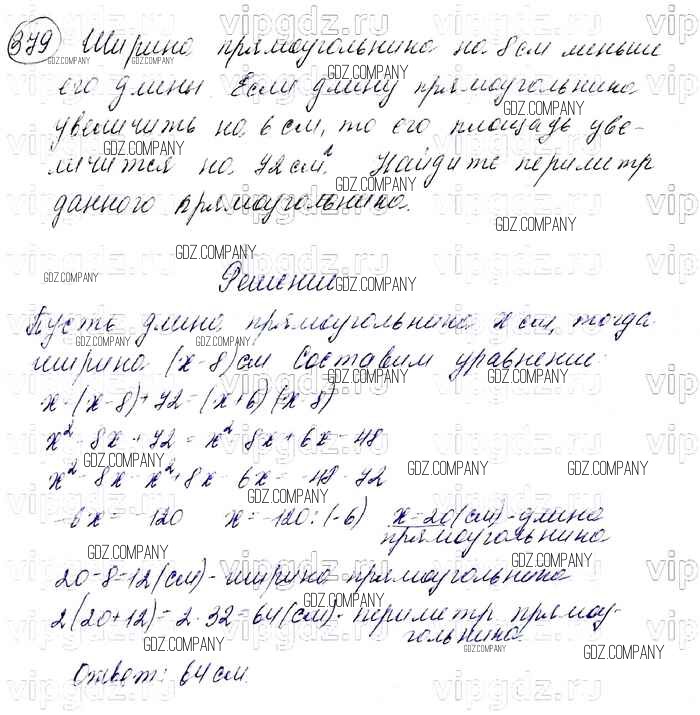 379 Ширина прямоугольника на 8 см меньше
его длины. Если длину прямоугольника
увеличить на 6 см, то его площадь уве-
личится на 72 см². Найдите периметр
данного прямоугольника.
Решение
Пусть длина прямоугольника x см, тогда
ширина (x-8) см Составим уравнение:
x·(x-8)+72=(x+6)(x-8)
x²-8x+72=x²-8x+6x-48
x²-8x-x²+8x-6x=-48-72
-6x=-120 x=-120:(-6) x=20(см)-длина
прямоугольника
20-8=12(см)-ширина прямоугольника
2(20+12)=2·32=64(см)-периметр прямоу-
гольника.
Ответ: 64 см.